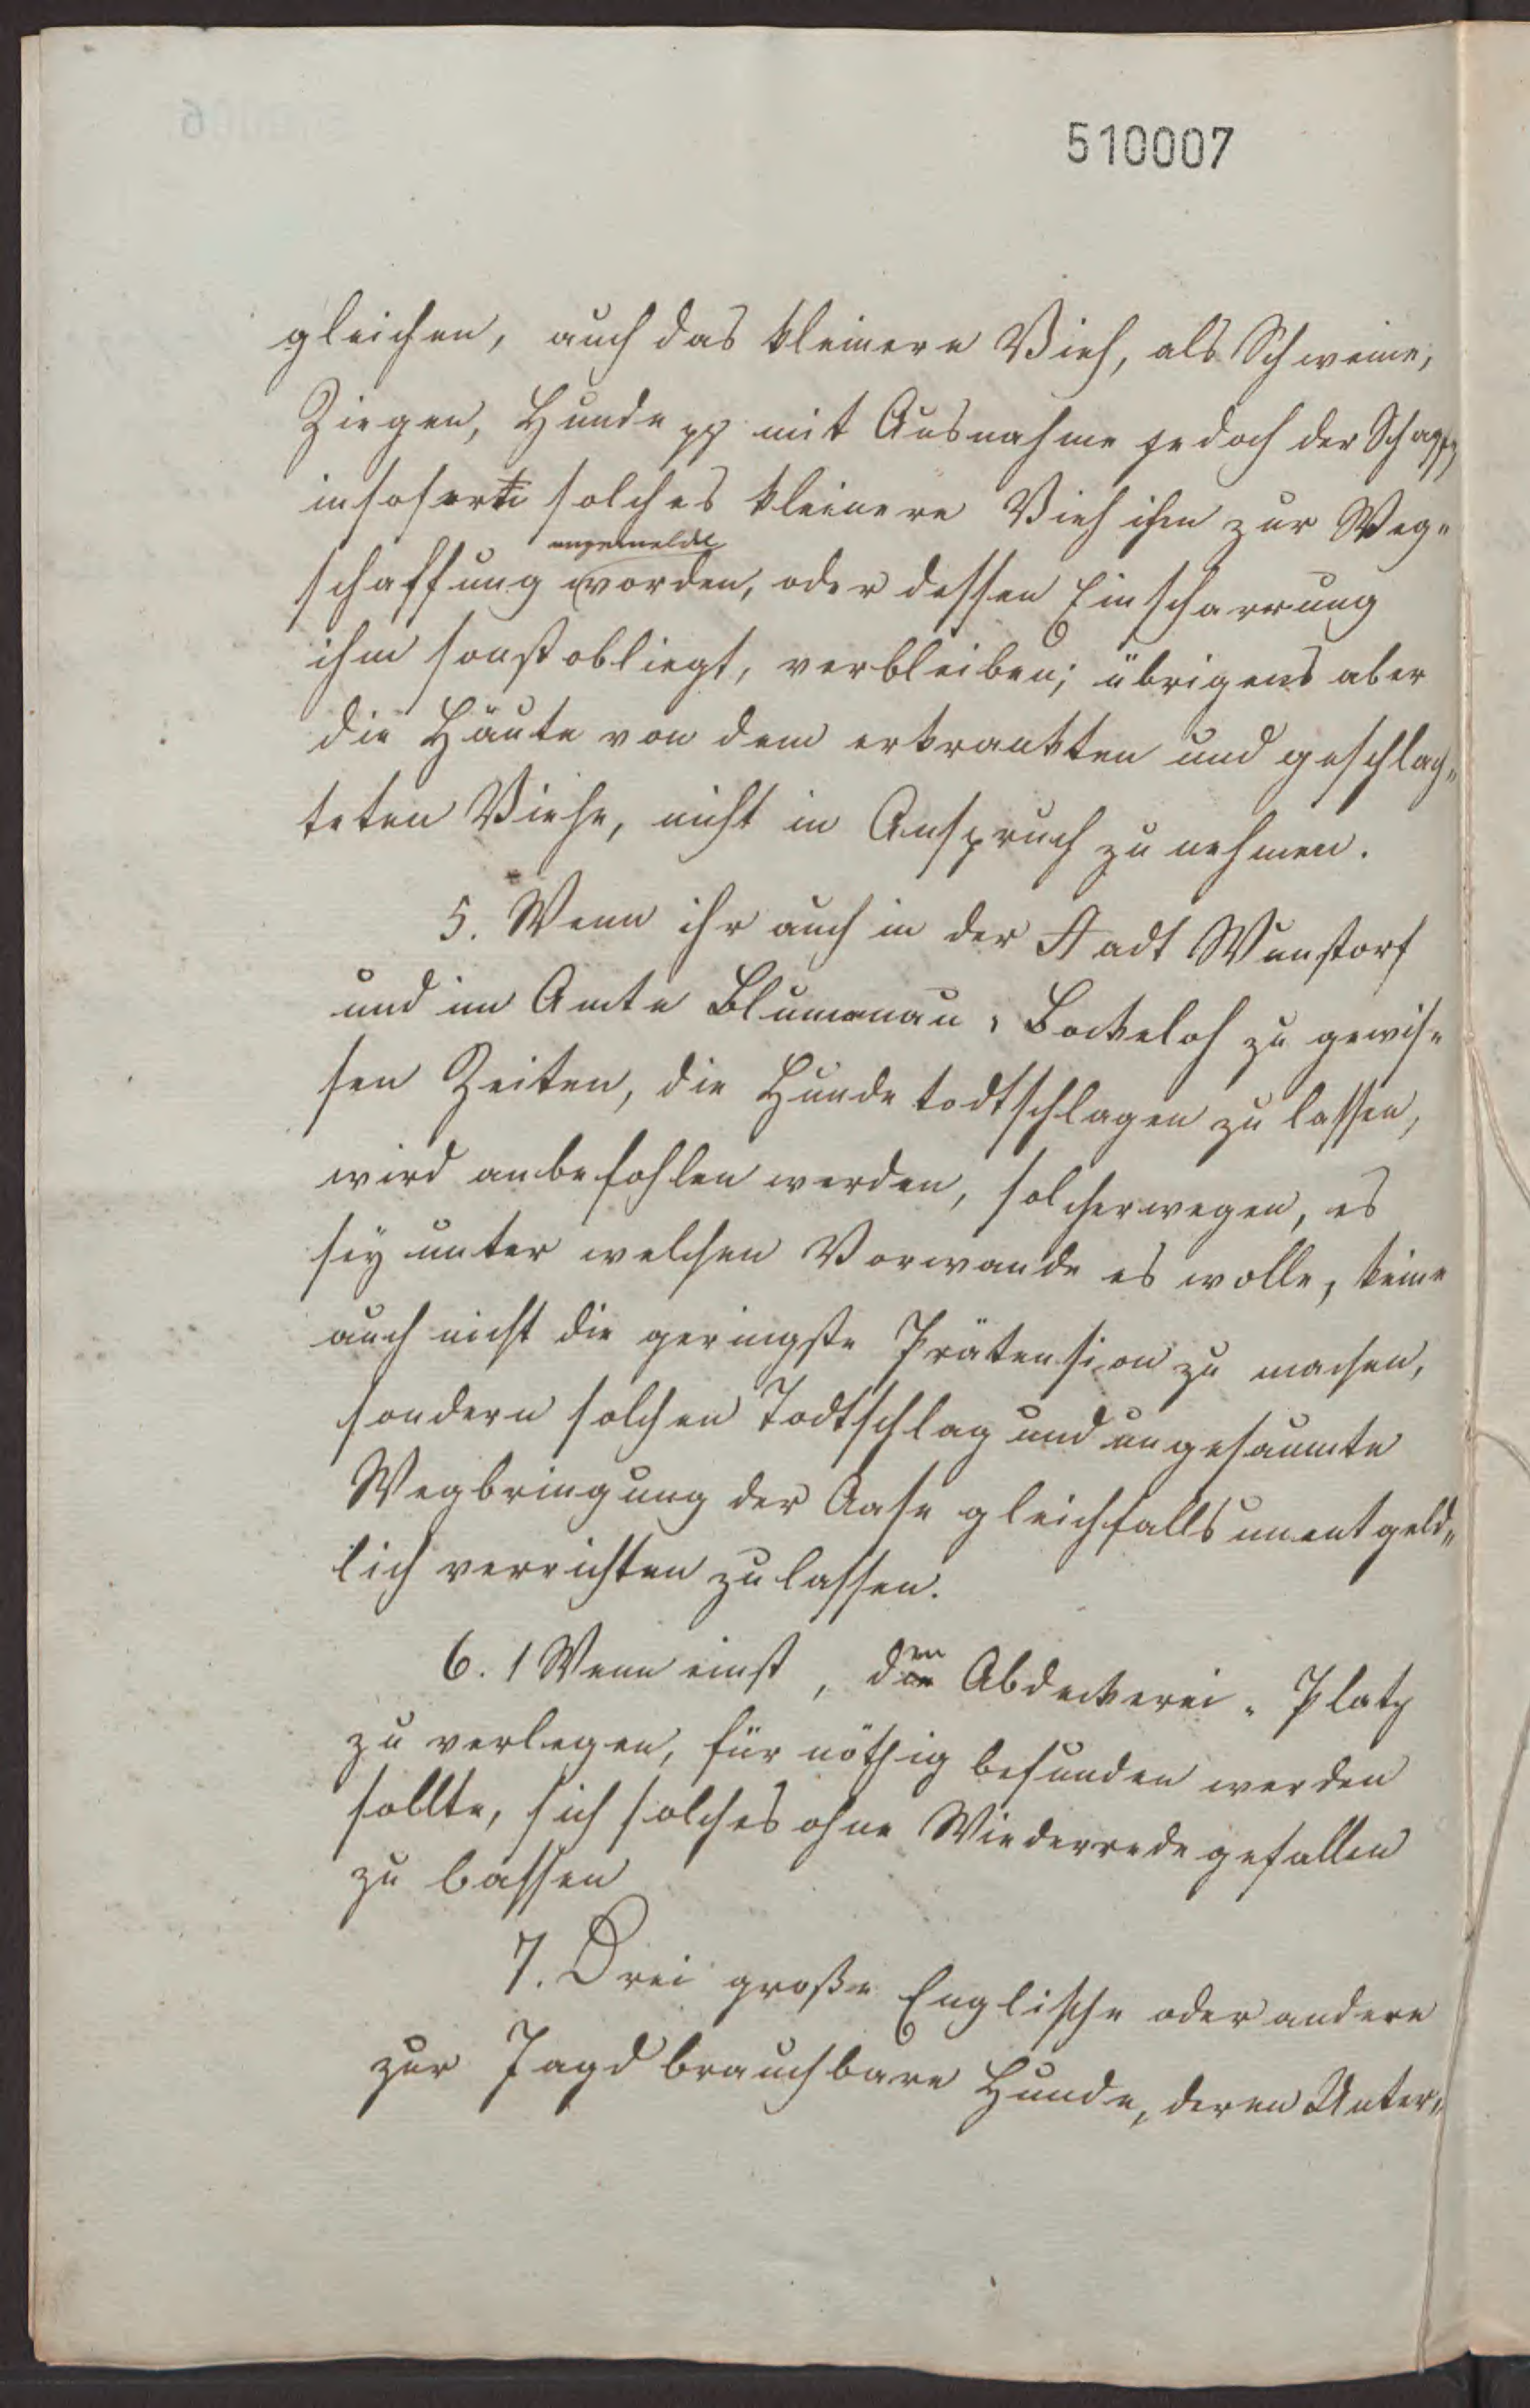 510007
gleichen, auch das kleinere Vieh, als Schweine,
Ziegen, Hunde pp mit Ausnahme jedoch der Schafe,
insofern solches kleinere Vieh ihm zur Weg-
angemeldet
schaffung worden, oder dessen Einscharrung
ihm sonst obliegt, verbleiben; übrigens aber
die Häute von dem erkrankten und geschlach-
teten Viehe, nicht in Anspruch zu nehmen.
5. Wenn ihr auch in der Stadt Wunstorf
und im Amte Blumenau-Bockeloh zu gewis-
sen Zeiten, die Hunde todtschlagen zu lassen,
wird anbefohlen werden, solcherwegen, es
sey unter welchen Vorwande es wolle, keine
auch nicht die geringste Prätension zu machen,
sondern solchen Todtschlag und ungesäumte
Wegbringung der Aase gleichfalls unentgeld-
lich verrichten zu lassen.
6. Wenn einst, den Abdeckerei-Platz
zu verlegen, für nöthig befunden werden
sollte, sich solches ohne Wiederrede gefallen
zu lassen
7. Drei große Englische oder andere
zur Jagd brauchbare Hunde, deren Unter-